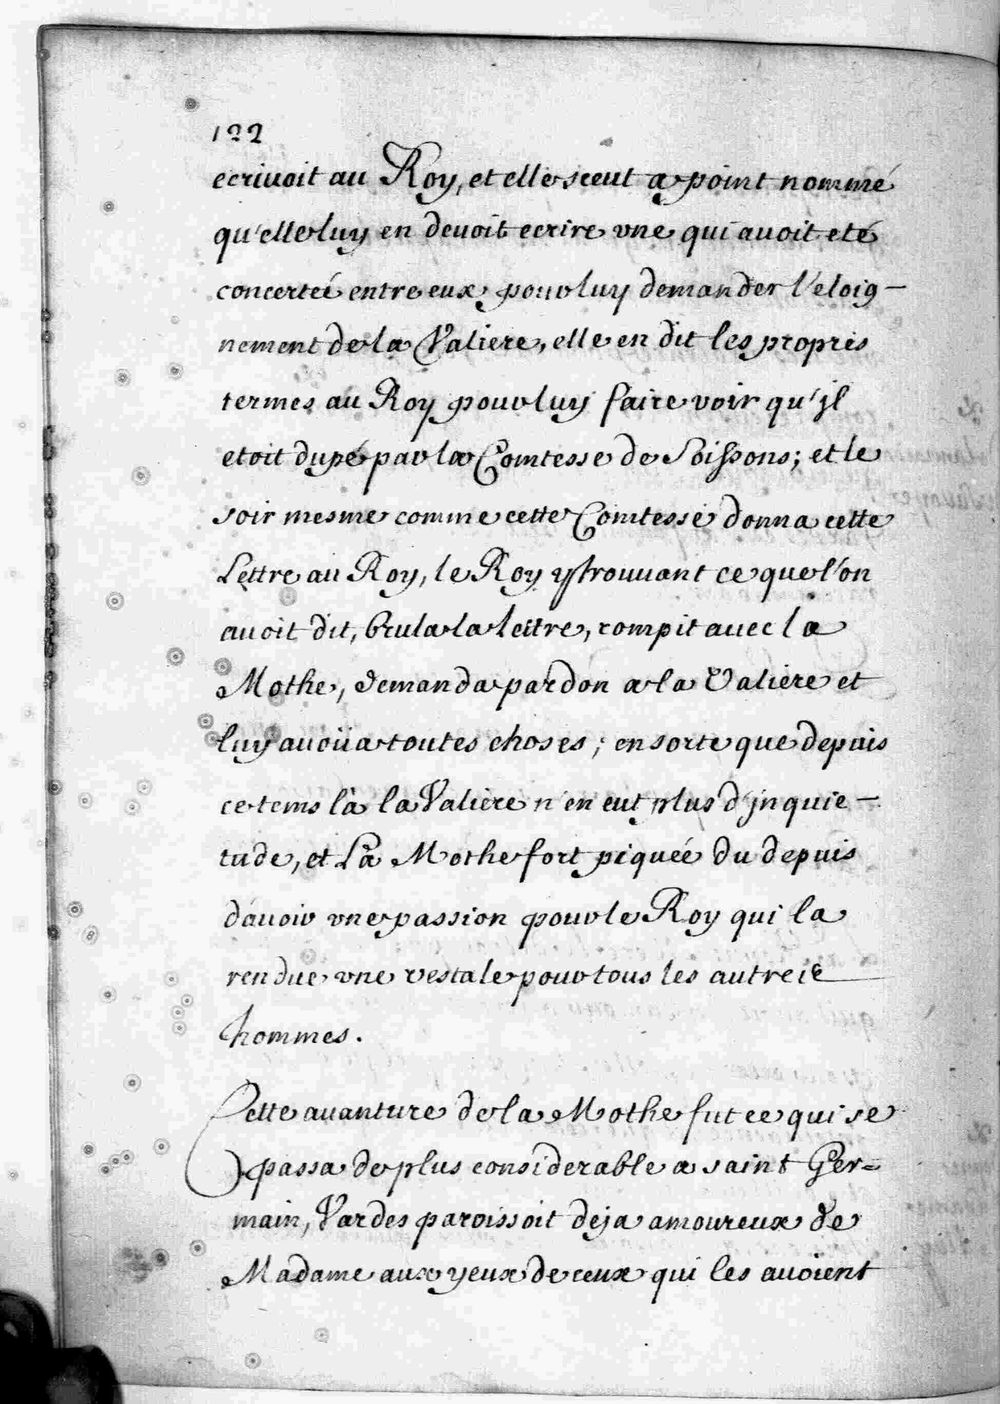 122
ecriuoit au Roy, et elle sceut a point nommé
qu'elle luy en deuoit ecrire vne qui auoit eté
concertée entre eux, pour luy demander l'eloig-
nement de la Valiere, elle en dit les propres
termes au Roy pour luy faire voir qu'jl
etoit dupé par la Comtesse de Soissons; et le
soir mesme comme cette Comtesse donna cette
Lettre au Roy, le Roy y trouuant ce que l'on
auoit dit, brula la lettre, rompit auec la
Mothe, demanda pardon a la Valiere et
luy auoüa toutes choses; en sorte que depuis
ce tems là la Valiere n'en eut plus d'jnquie-
tude, et La Mothe fort piquée du depuis
d'auoir vne passion pour le Roy qui la
rendue vne vestale pour tous les
hommes.
Cette auanture de la Mothe fut ce qui se
passa de plus considerable a saint Ger=
main, Vardes paroissoit deja amoureux de
Madame aux yeux de ceux qui les auoient